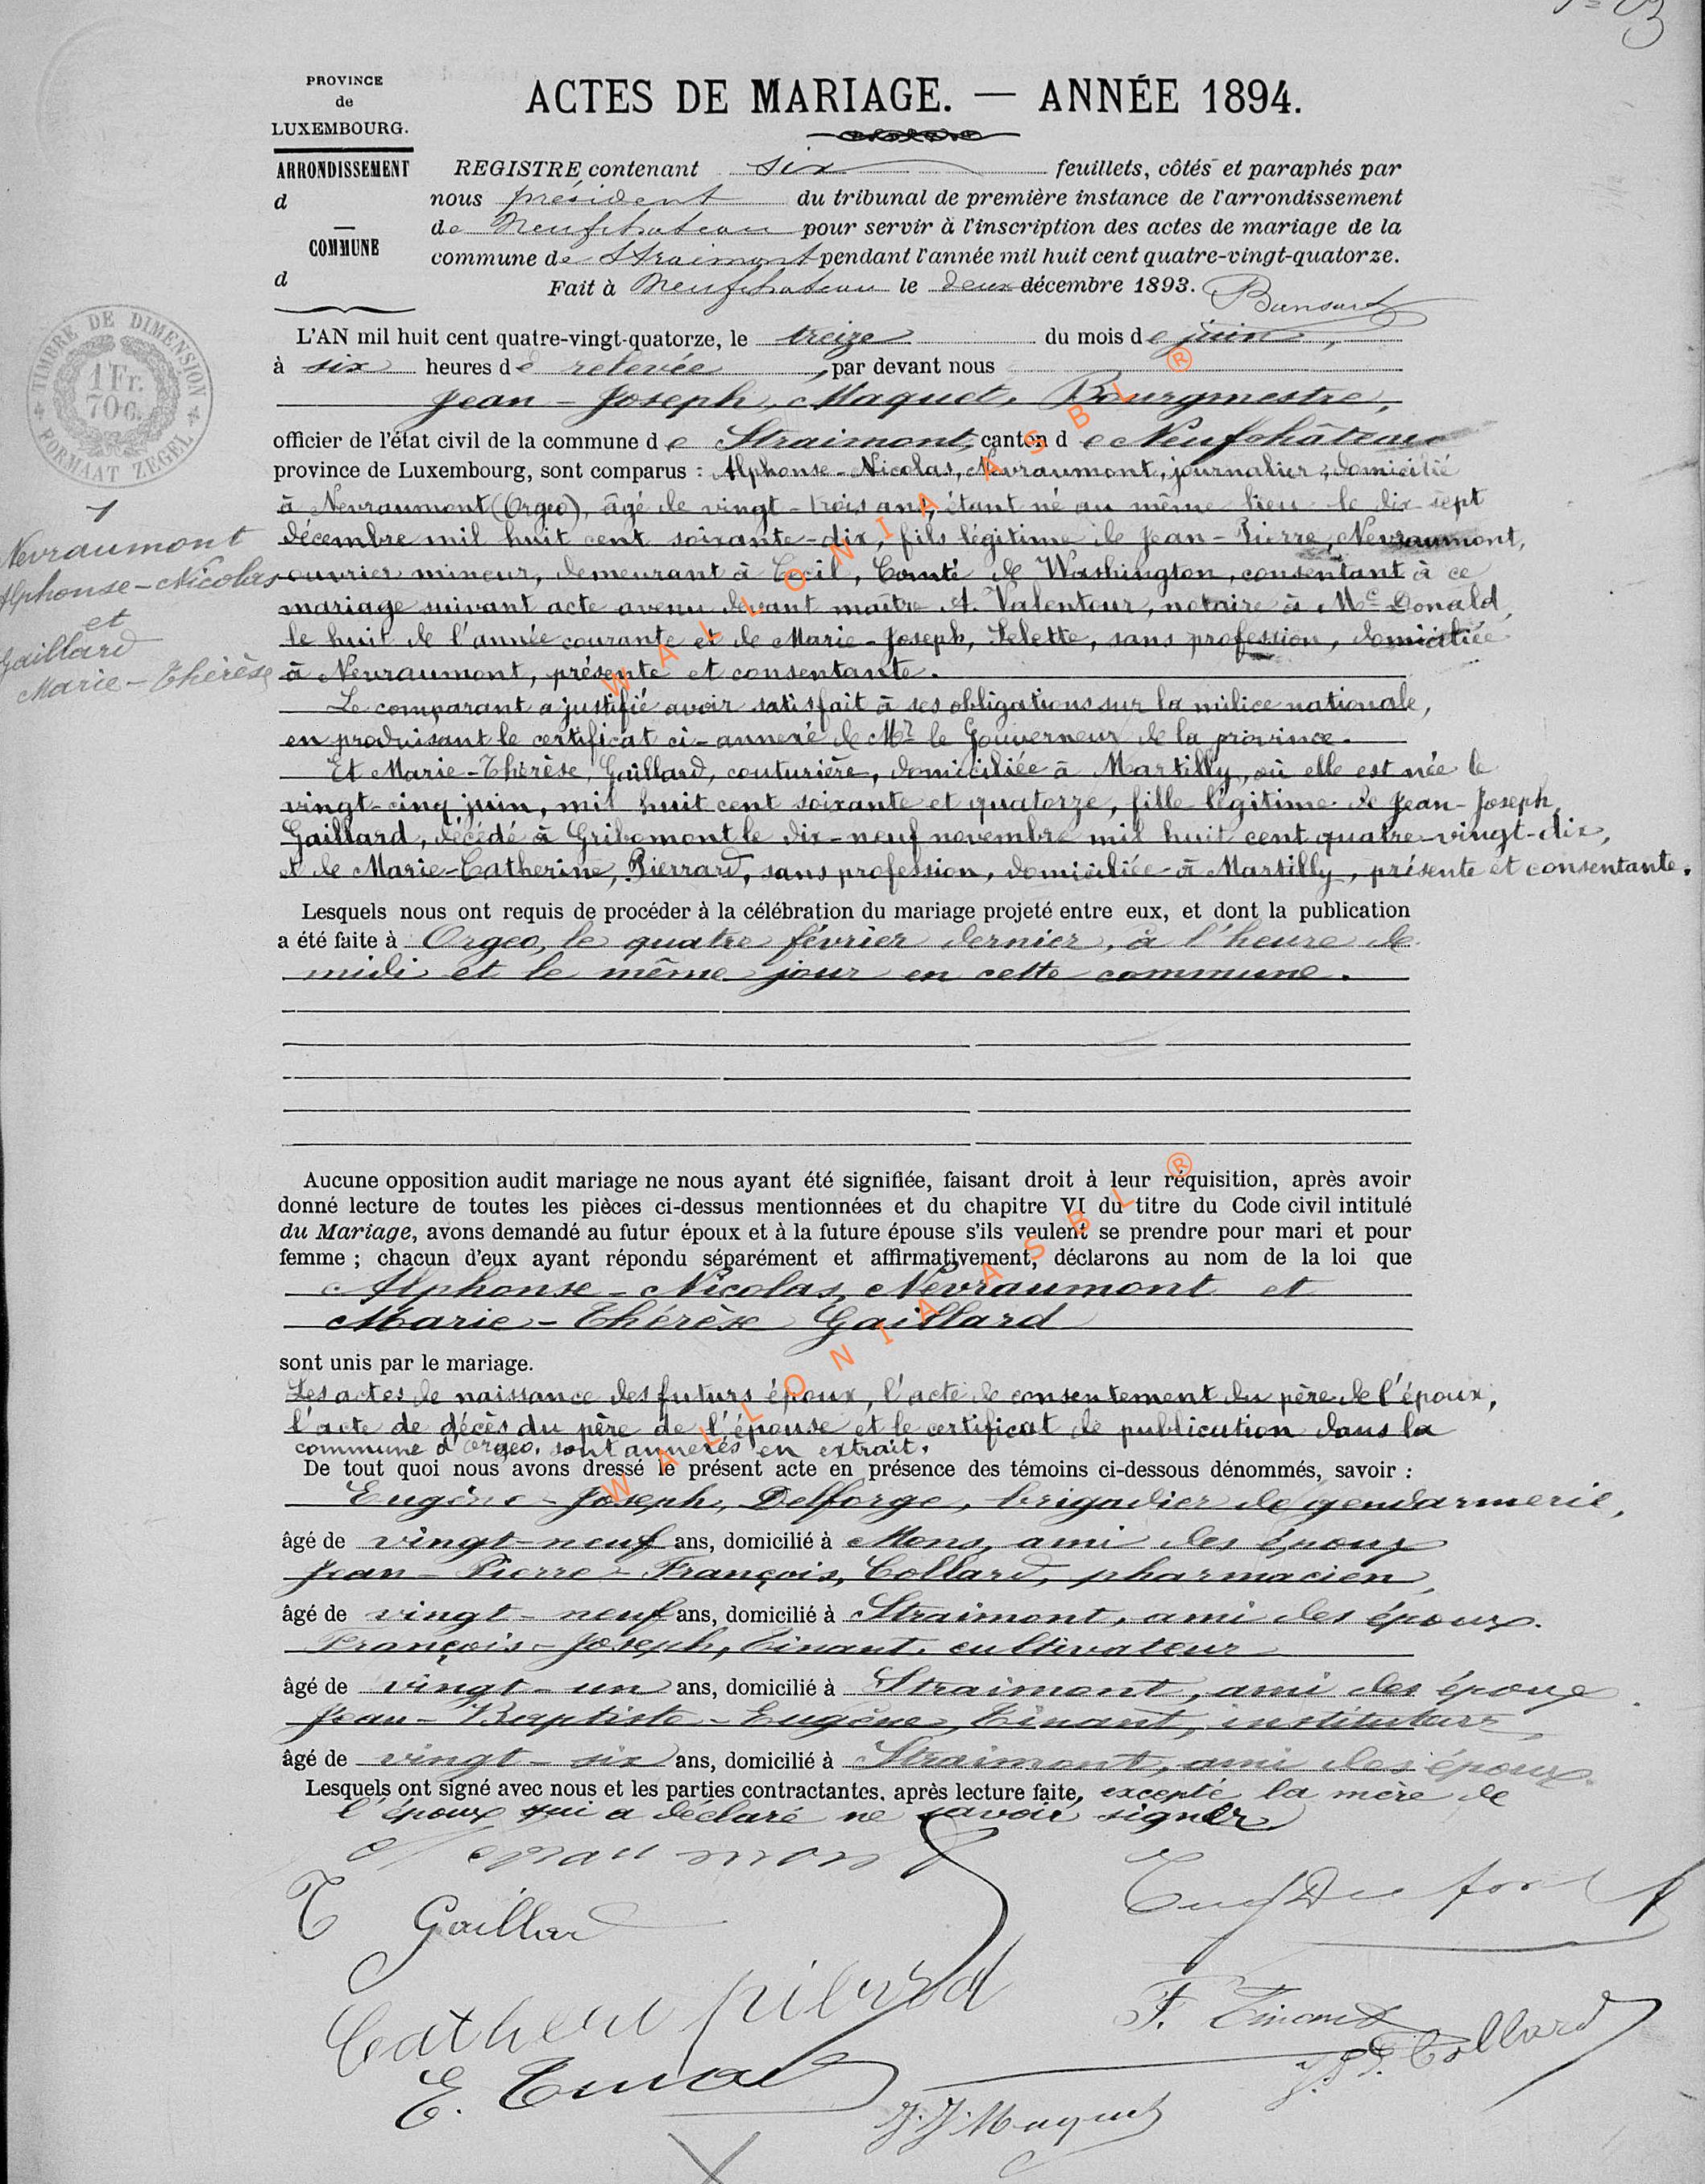 PROVINCE
de
LUXEMBOURG.
ARRONDISSEMENT
d
COMMUNE
d
ACTES DE MARIAGE. — ANNÉE 1894.
REGISTRE contenant six feuillets, côtés et paraphés par
nous président du tribunal de première instance de l'arrondissement
de Neufchateau pour servir à l'inscription des actes de mariage de la
commune de Straimont pendant l'année mil huit cent quatre-vingt-quatorze.
Fait à Neufchateau le deux décembre 1893.
TIMBRE DE DIMENSION
1 Fr.
70 C.
FORMAAT ZEGEL
1
Nevraumont
Alphonse-Nicolas
et
Gaillard
Marie-Thérèse
L'AN mil huit cent quatre-vingt-quatorze, le treize du mois de juin,
à six heures de relevée, par devant nous
Jean-Joseph, Maquet, Bourgmestre,
officier de l'état civil de la commune de Straimont, canton de Neufchâteau
province de Luxembourg, sont comparus : Alphonse-Nicolas, Nevraumont, journalier, domicilié
à Nevraumont (Orgeo), âgé de vingt-trois ans, étant né au même lieu le dix sept
décembre mil huit cent soixante-dix, fils légitime de Jean-Pierre, Nevraumont,
ouvrier mineur, demeurant à Cecil, Comté de Washington, consentant à ce
mariage suivant acte avenu devant maître A. Valentour, notaire à Mc Donald,
le huit de l'année courante et de Marie-Joseph, Lelette, sans profession, domiciliée
à Nevraumont, présente et consentante.
Le comparant a justifié avoir satisfait à ses obligations sur la milice nationale,
en produisant le certificat ci-annexé de Mr le Gouverneur de la province.
Et Marie-Thérèse, Gaillard, couturière, domiciliée à Martilly, où elle est née le
vingt-cinq juin, mil huit cent soixante et quatorze, fille légitime de Jean-Joseph,
Gaillard, décédé à Gribomont le dix-neuf novembre mil huit cent quatre-vingt-dix,
et de Marie-Catherine, Pierrard, sans profession, domiciliée à Martilly, présente et consentante.
Lesquels nous ont requis de procéder à la célébration du mariage projeté entre eux, et dont la publication
a été faite à Orgeo, le quatre février dernier, à l'heure de
midi et le même jour en cette commune.
Aucune opposition audit mariage ne nous ayant été signifiée, faisant droit à leur réquisition, après avoir
donné lecture de toutes les pièces ci-dessus mentionnées et du chapitre VI du titre du Code civil intitulé
du Mariage, avons demandé au futur époux et à la future épouse s'ils veulent se prendre pour mari et pour
femme ; chacun d'eux ayant répondu séparément et affirmativement, déclarons au nom de la loi que
Alphonse-Nicolas, Nevraumont et
Marie-Thérèse Gaillard
sont unis par le mariage.
Les actes de naissance des futurs époux, l'acte de consentement du père de l'époux,
l'acte de décès du père de l'épouse et le certificat de publication dans la
commune d'Orgeo, sont annexés en extrait.
De tout quoi nous avons dressé le présent acte en présence des témoins ci-dessous dénommés, savoir :
Eugène-Joseph, Delforge, brigadier de gendarmerie,
âgé de vingt-neuf ans, domicilié à Mons, ami des époux
Jean-Pierre-François, Collard, pharmacien,
âgé de vingt-neuf ans, domicilié à Straimont, ami des époux.
François-Joseph, Tinant, cultivateur
âgé de vingt-un ans, domicilié à Straimont, ami des époux
Jean-Baptiste-Eugène, Tinant, instituteur,
âgé de vingt-six ans, domicilié à Straimont, ami des époux.
Lesquels ont signé avec nous et les parties contractantes, après lecture faite, excepté la mère de
l'époux qui a déclaré ne savoir signer
T Gaillard
F. Tinant
J.P.F. Collard
E. Tinant
J. J. Maquet
WALLONIA ASBL ®
WALLONIA ASBL ®